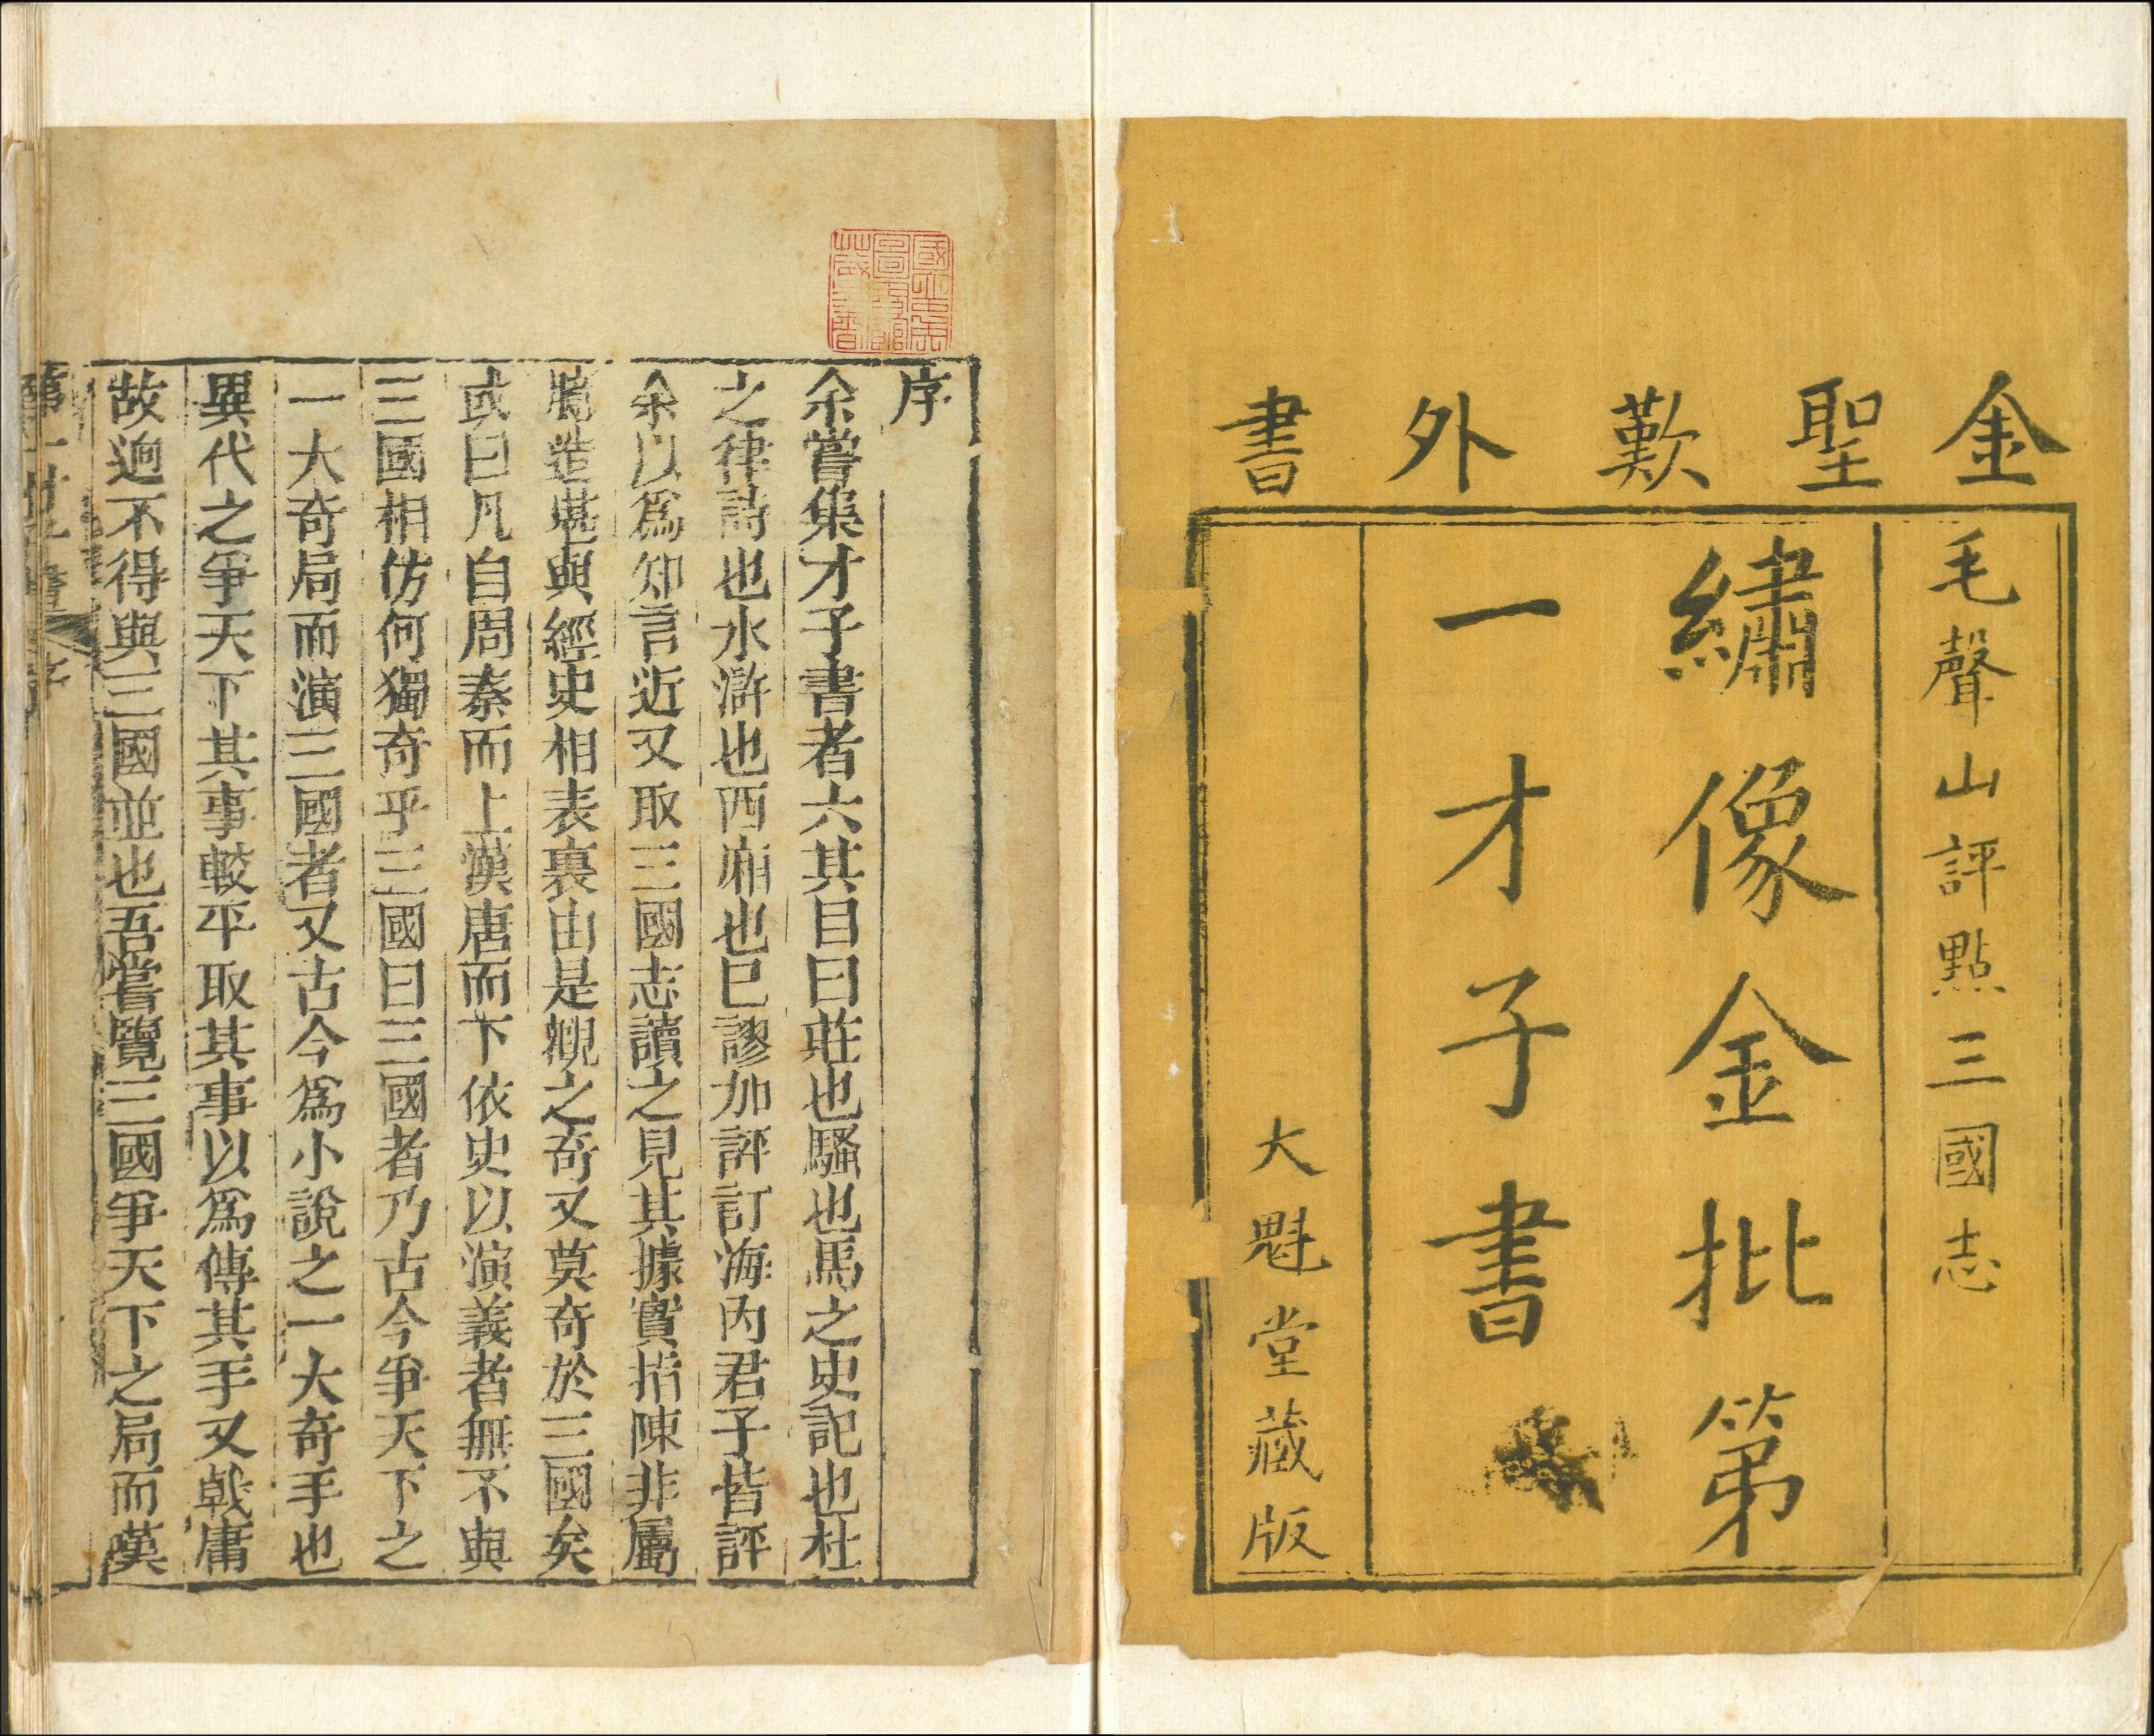 金聖歎外書
毛聲山評點三國志
繡像金批第
一才子書
大魁堂藏版
國立中央圖書館藏書
序
余嘗集才子書者六其目曰莊也騷也馬之史記也杜
之律詩也水滸也西廂也已謬加評訂海內君子皆評
余以爲知言近又取三國志讀之見其據實指陳非屬
臆造堪與經史相表裏由是觀之奇又莫奇於三國矣
或曰凡自周秦而上漢唐而下依史以演義者無不與
三國相仿何獨奇乎三國曰三國者乃古今爭天下之
一大奇局而演三國者又古今爲小說之一大奇手也
異代之爭天下其事較平取其事以爲傳其手又戟庸
故迥不得與三國並也吾嘗覽三國爭天下之局而漢